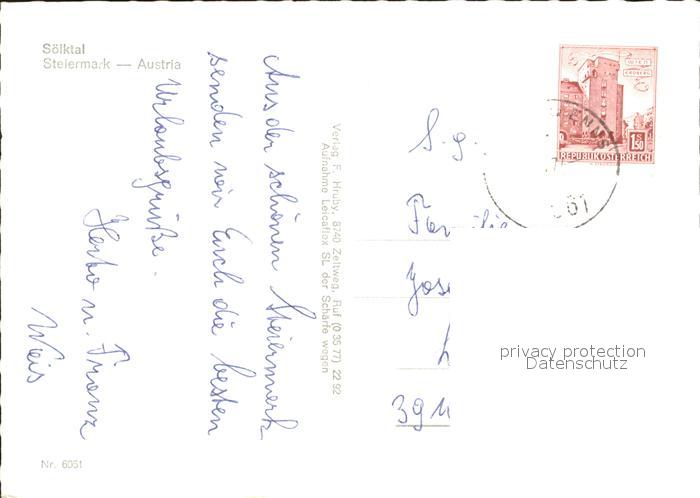 Sölktal
Steiermark — Austria
Aus der schönen Steiermark
senden wir Euch die besten
Urlaubsgrüße.
Herta u. Franz
Weis
Verlag F. Hruby, 8740 Zeltweg, Ruf (0 35 77) 22 92
Aufnahme Leicaflex SL der Schärfe wegen
S. g.
Fa
Jos
391
WIEN
ERDBERG
1.50 S
REPUBLIK ÖSTERREICH
privacy protection
Datenschutz
Nr. 6051